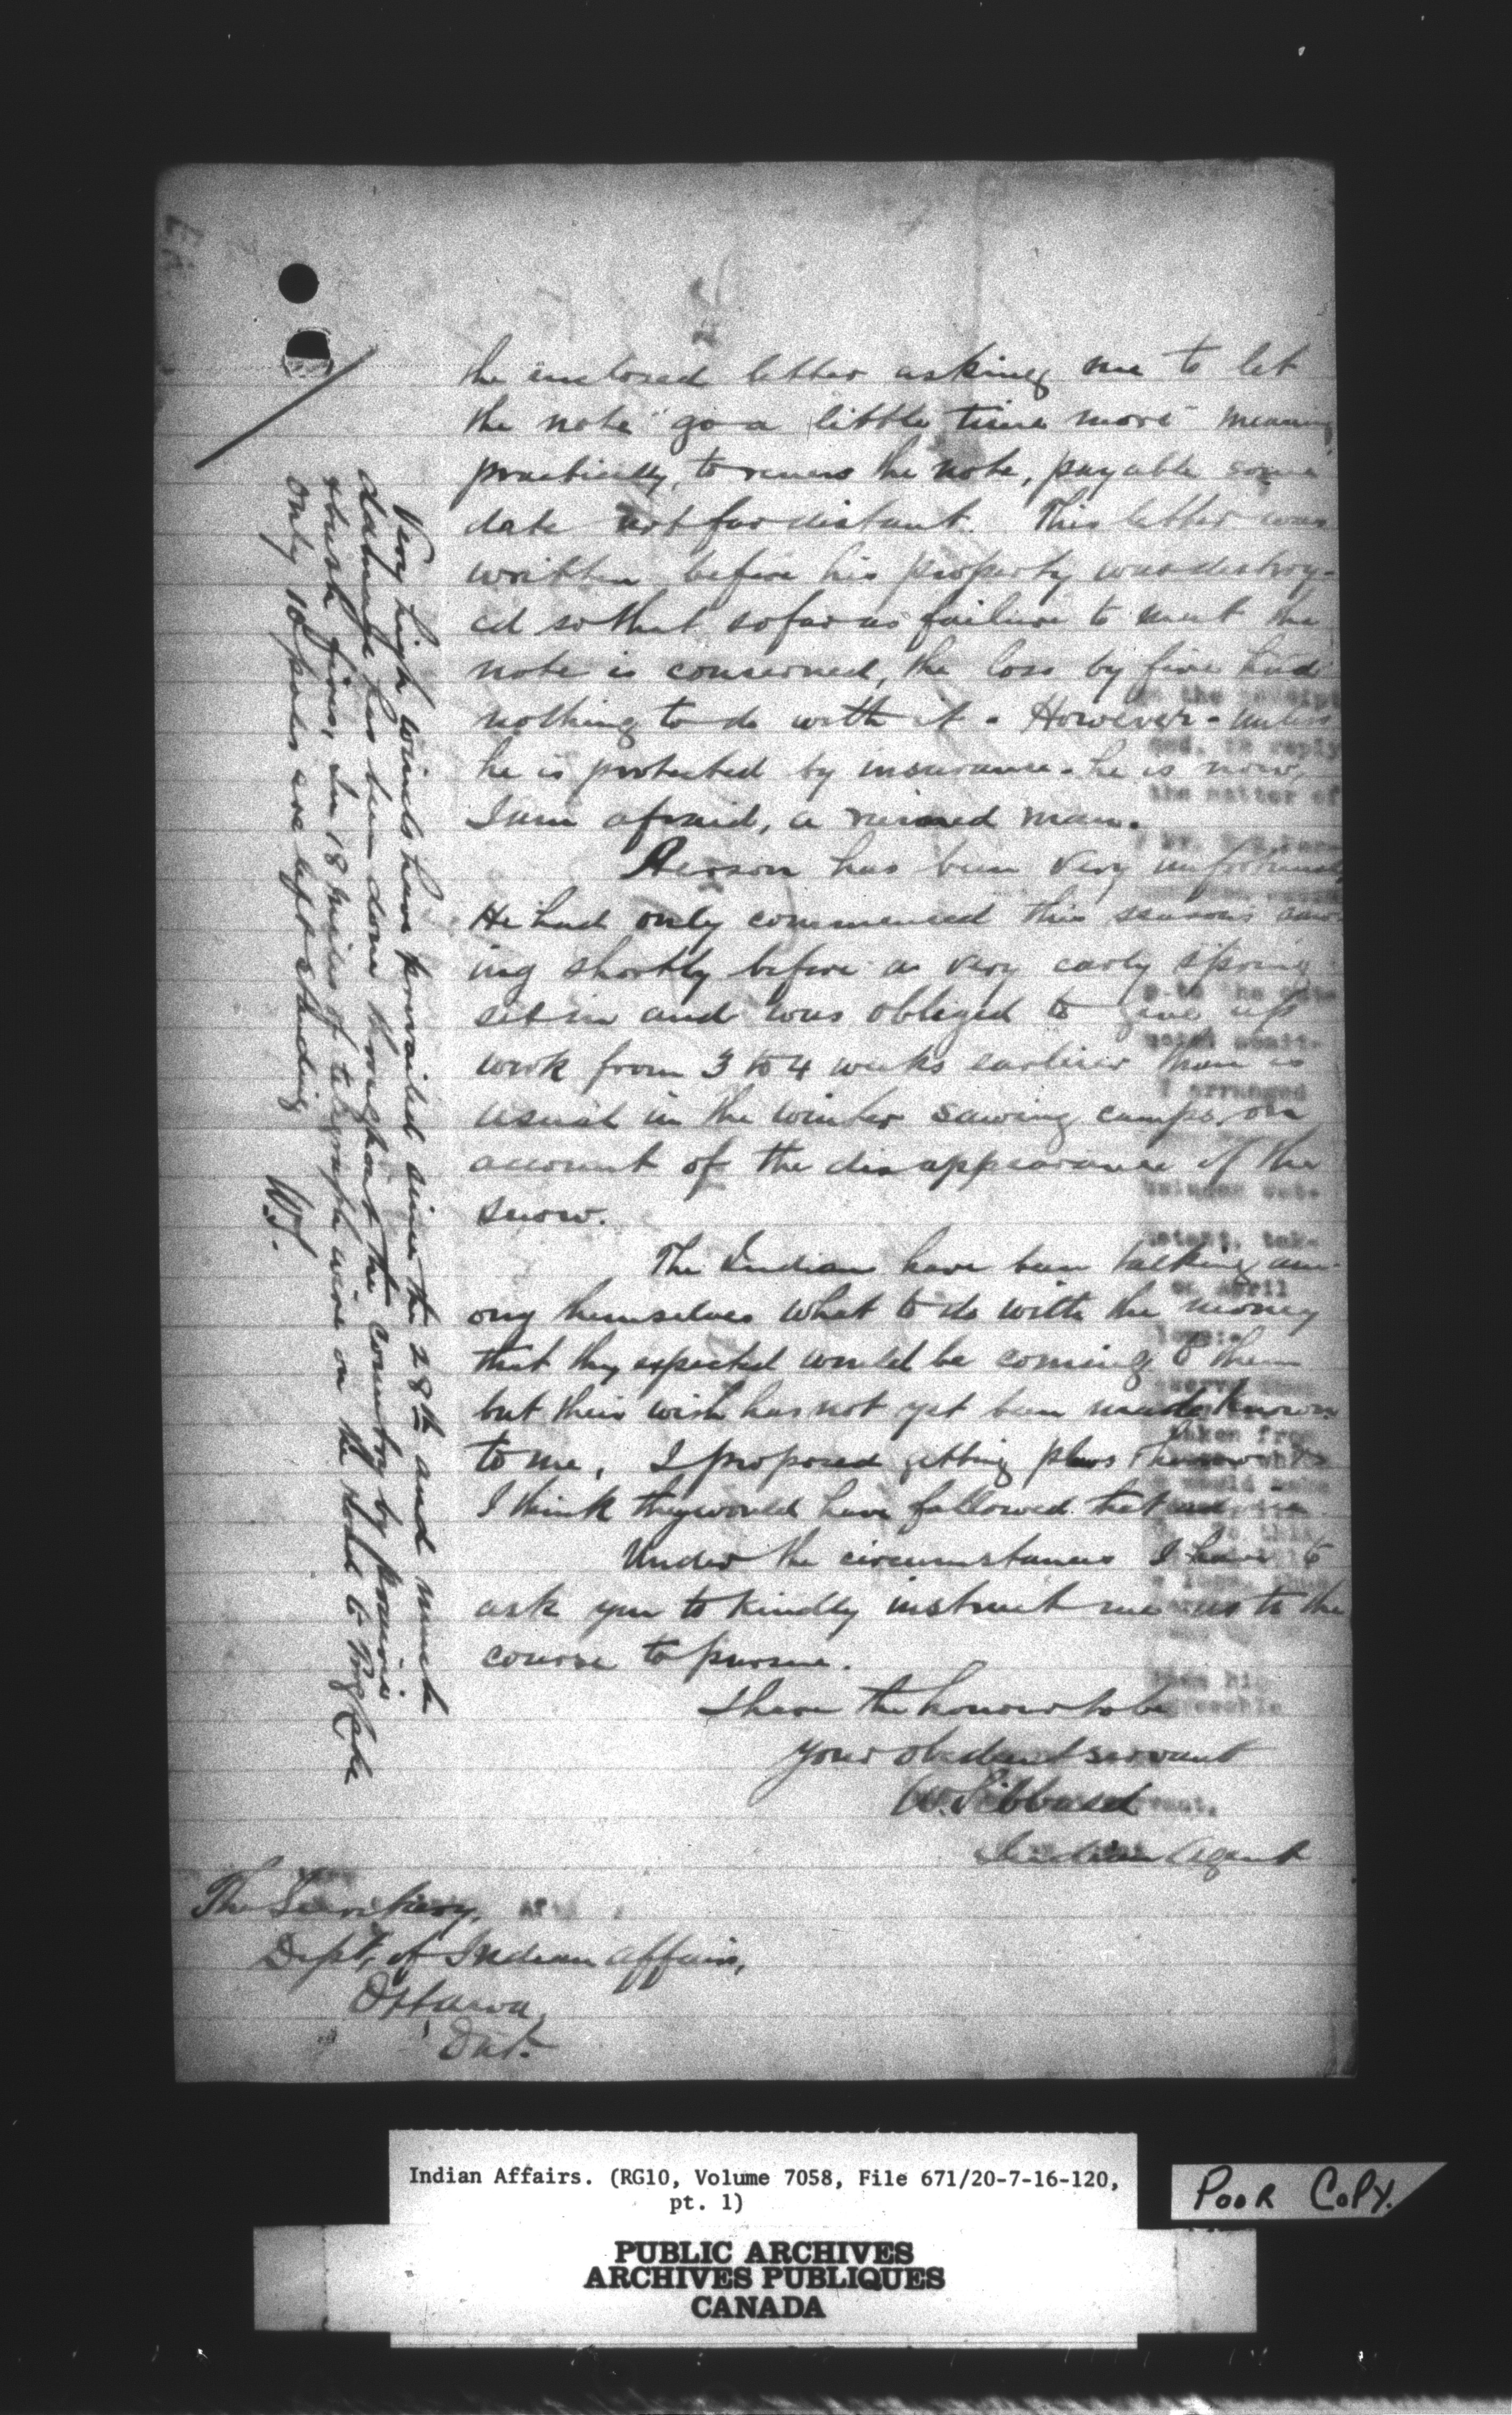 the inclosed letter asking me to let
the note "go a little time more" meaning
practically, to renew the note, payable some
date not far distant. This letter was
written before his property was destroy-
ed so that so far as failure to meet the
note is conserned, the loss by fire had
nothing to do with it. However - unless
he is protected by insurance - he is now,
I am afraid, a ruined man.
has been very unfortunate
He had only commenced this seasons saw-
ing shortly before a very early spring
set in and was obliged to give up
work from 3 to 4 weeks earlier than is
usual in the winter sawing camps, on
account of the disappearance of the
snow.
The Indian have been talking am-
ong themselves what to do with the money
that they expected would be coming to them
but their wish has not yet been made known
to me, I proposed getting plows
I think they would have followed that
Under the circumstances I have to
ask you to kindly instruct me as to the
course to pursue.
I have the honour to be
your obedient servant
W. Sibbald
Indian Agent
The Secretary,
Dept. of Indian Affairs,
Ottawa,
Ont.
Very high winds have prevailed since the 28th and much
damage has been done throughout the country by prairie
& bush fires, In 18 miles of telegraph wire on the road to
only 10 poles are left standing
W.S.
the receipt
reply
the matter of
I arranged
April
taken from
Indian Affairs. (RG10, Volume 7058, File 671/20-7-16-120,
pt. 1)
POOR COPY.
PUBLIC ARCHIVES
ARCHIVES PUBLIQUES
CANADA